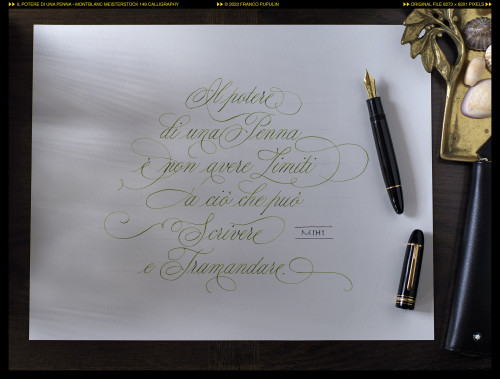 IL POTERE DI UNA PENNA - MONTBLANC MEISTERSTÜCK 149 CALLIGRAPHY
© 2023 FRANCO PUPULIN
ORIGINAL FILE 8273 × 6201 PIXELS
Il potere
di una Penna
è non avere Limiti
a ciò che può
Scrivere
e Tramandare.